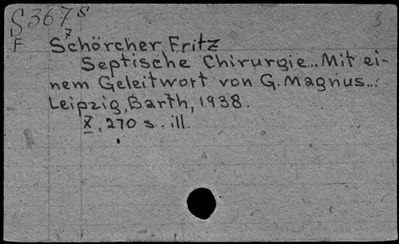 S367s 3
F 7
Schörcher, Fritz
Septische Chirurgie... Mit ei-
nem Geleitwort von G. Magnus...
Leipzig, Barth, 1938.
X, 270 s. ill.